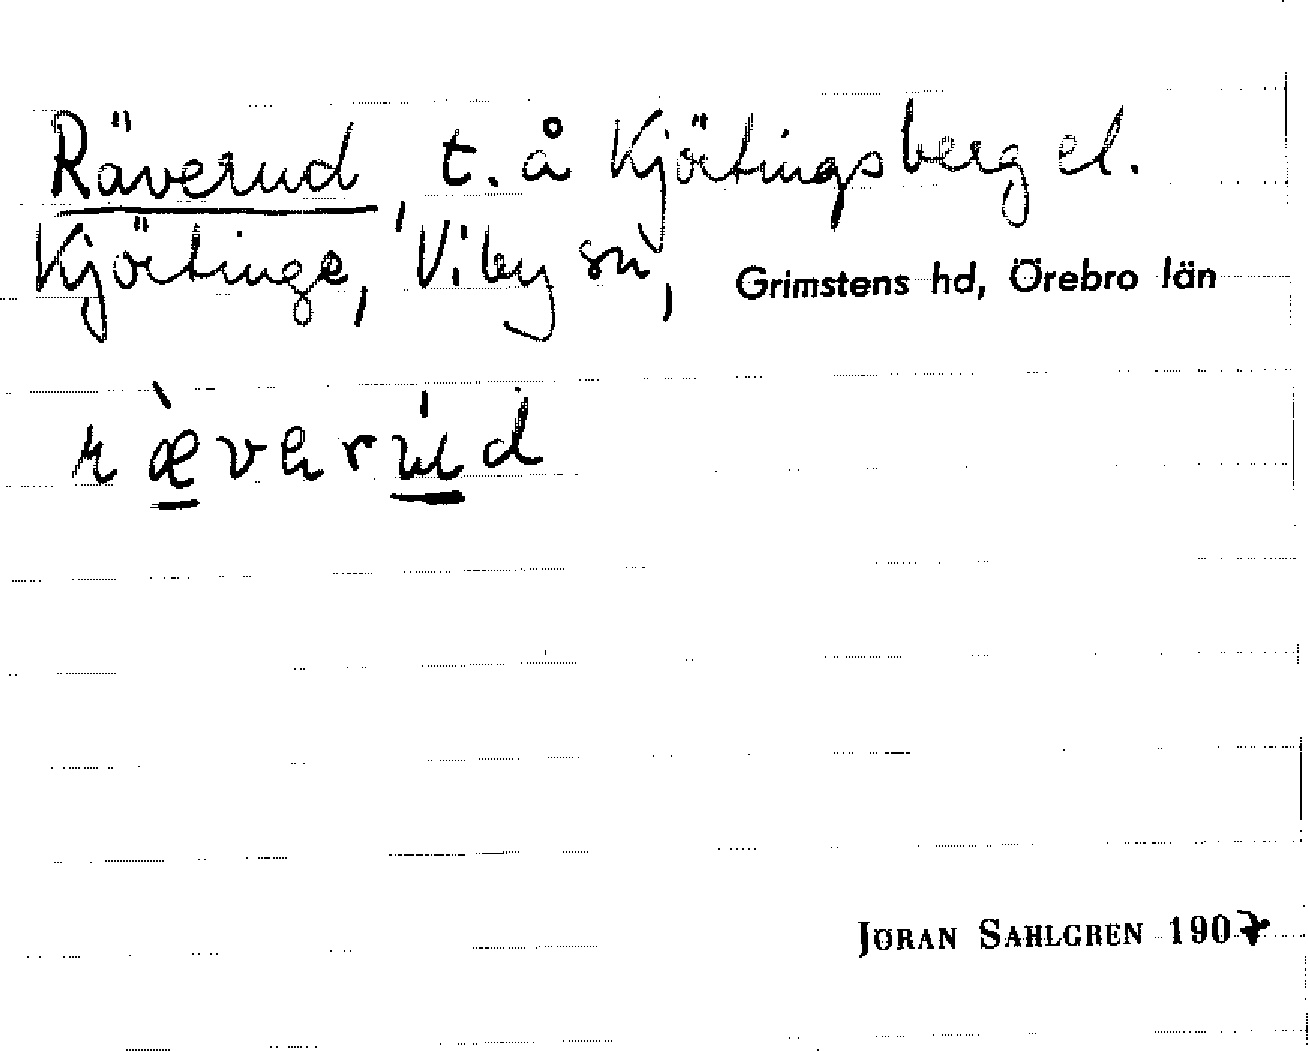 Räverud, t. å Kjörtingsberg el.
Kjörtinge, Viby sn, Grimstens hd, Örebro län
JÖRAN SAHLGREN 1907